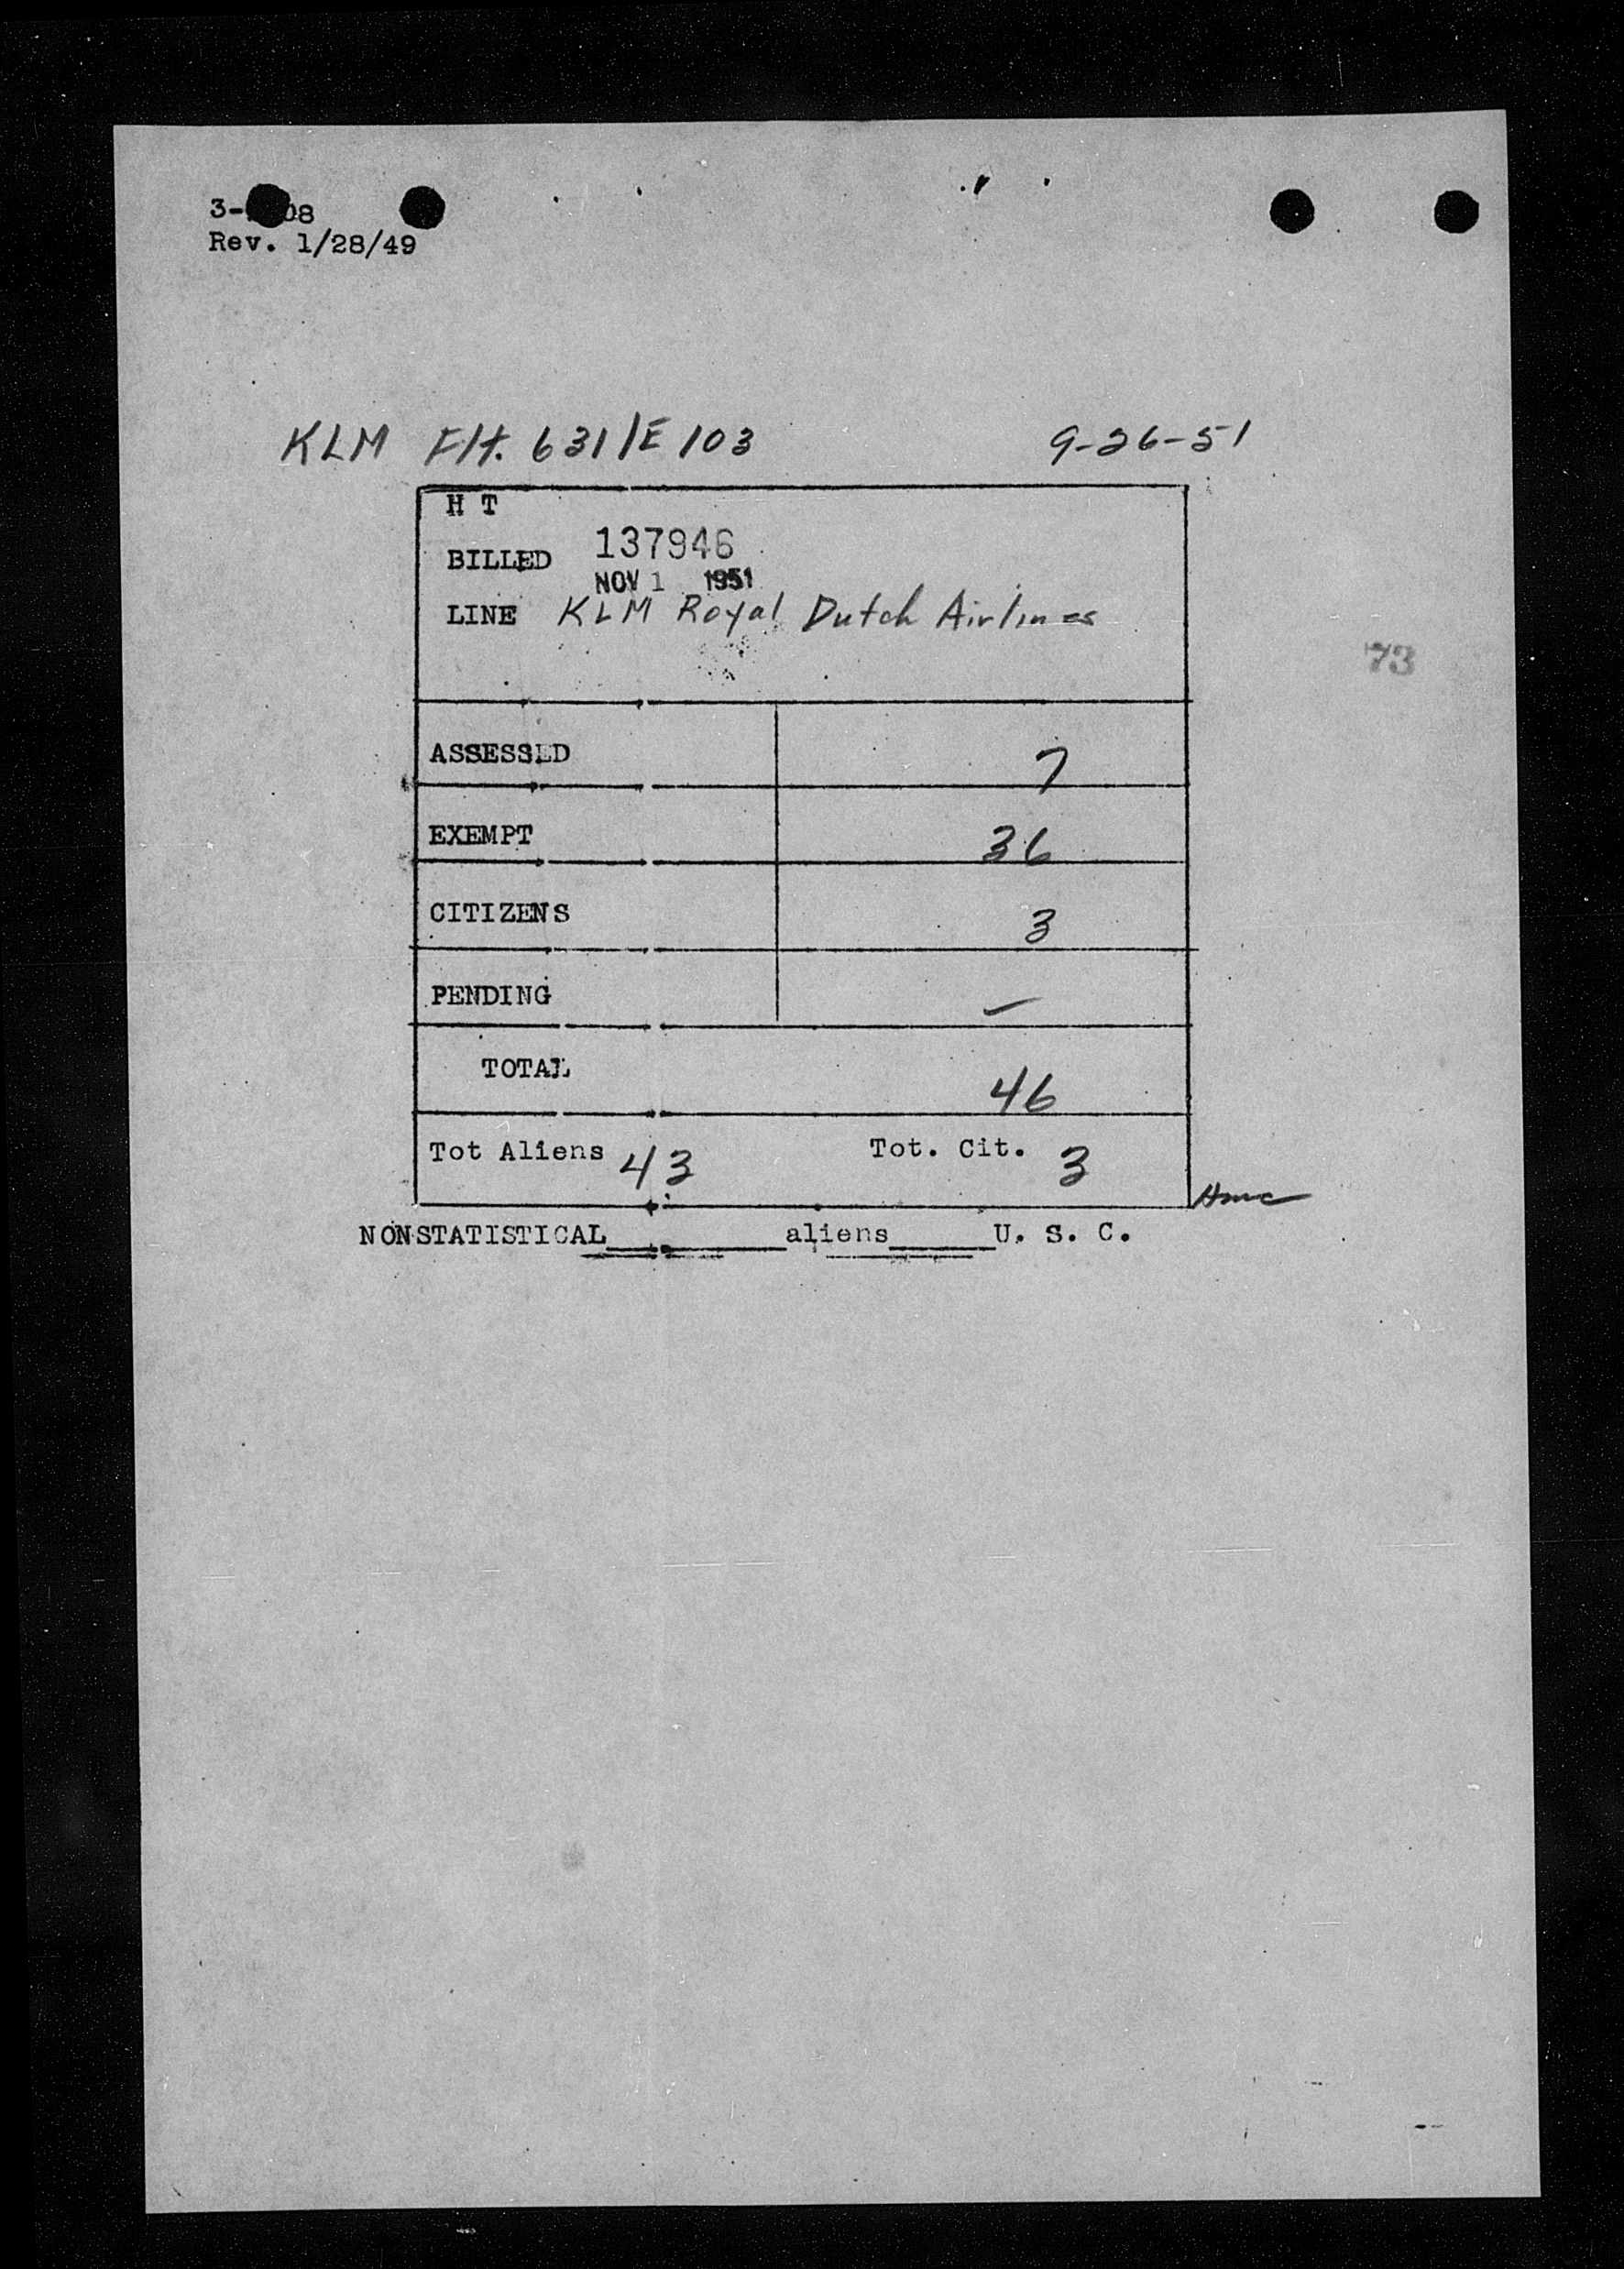 3-  08
Rev. 1/28/49
KLM Flt. 631/E 103 9-26-51
H T
BILLED 137946
NOV 1 1951
LINE KLM Royal Dutch Airlines
73
ASSESSED 7
EXEMPT 36
CITIZENS 3
PENDING –
TOTAL 46
Tot Aliens 43 Tot. Cit. 3
NONSTATISTICAL__________aliens______U. S. C.